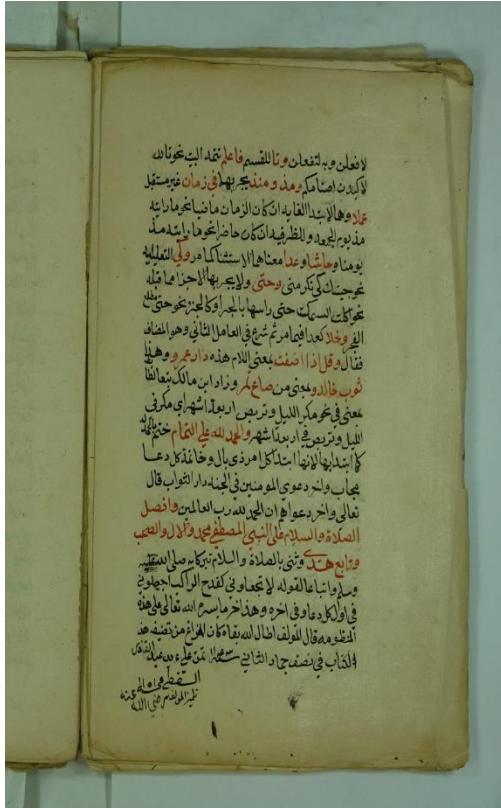 لافعلن وبه لتفعلن وتا للقسم فاعلم تتمة البيت نحو تالله
لاكيدن اصنامكم ومذ ومنذ يجر بهما في زمان غير مستقبل
عملا وهما لابتداء الغاية ان كان الزمان ماضيا نحو ما رايته
مذ يوم الجمعة وللظرفية ان كان حاضرا نحو ما رايته مذ
يومنا وحاشا وعدا معناهما الاستثنا كما مر وكي التعليلية
نحو جيتك كي تكرمني وحتى ولا يجر بها الا جزء مما قبله
نحو اكلت السمكة حتى راسها بالجر او كالجزء نحو حتى مطلع
الفجر وخلا كعدا فيما مر ثم شرع في العامل الثاني وهو المضاف
فقال وقل اذا اضفت بمعنى اللام هذه دار عمرو وهذا
ثوب خالد وبمعنى من صاع تمر وزاد ابن مالك تبعا لطائفة
بمعنى في نحو مكر الليل وتربص اربعة اشهر اي مكر في
الليل وتربص في اربعة اشهر والحمد لله على التمام ختم بالحمدلة
كما ابتدا بها لانها ابتدا كل امر ذي بال وخاتمة كل دعا
مجاب واخر دعوى المومنين في الجنة دار الثواب قال
تعالى واخر دعواهم ان الحمد لله رب العالمين وافضل
الصلاة والسلام على النبي المصطفى محمد والال والصحب
وتابع هدى وثنى بالصلاة والسلام تبركا به صلى الله عليه
وسلم واتباعا لقوله لا تجعلوني كقدح الراكب اجعلوني
في اول كل دعا وفي اخره وهذا اخر ما يسره الله تعالى على هذه
المنظومة قال المولف اطال الله بقاه كان الفراغ من تصنيفه هذ
الكتاب في نصف جماد الثاني تمت على يد عبد